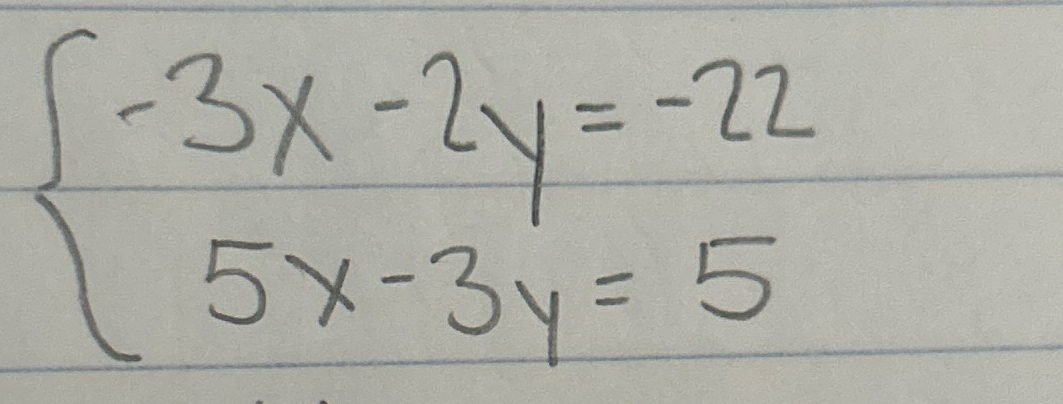 -3x - 2y = -22
5x - 3y = 5